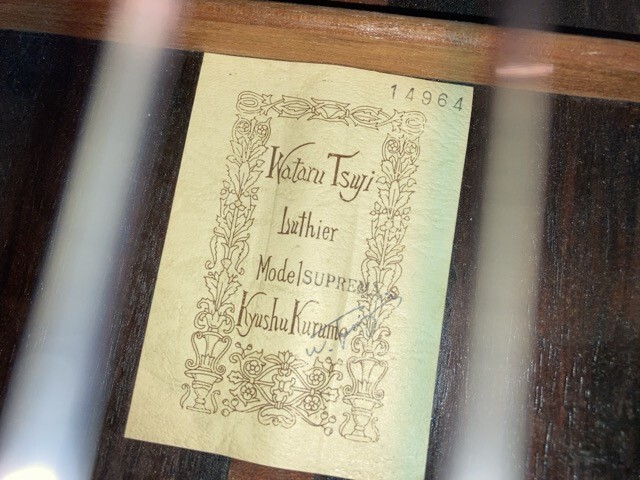 14964
Wataru Tsuji
Luthier
Model SUPREME
Kyushu Kurume
W. Tsuji